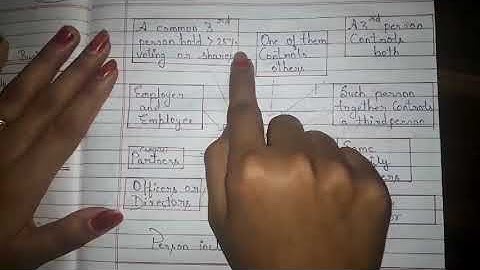 A common 3rd
person hold >25%
voting or shares
One of them
Controls
others
A 3rd person
Controls
both
Employer
and
Employee
Such person
together Controls
a third person
Partners
Same
Officers or
Directors
Person